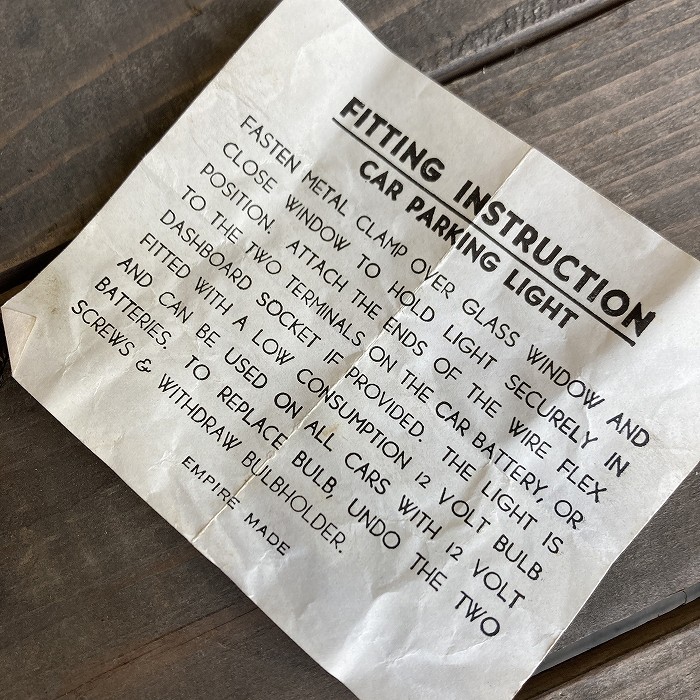 FITTING INSTRUCTION
CAR PARKING LIGHT
FASTEN METAL CLAMP OVER GLASS WINDOW AND
CLOSE WINDOW TO HOLD LIGHT SECURELY IN
POSITION. ATTACH THE ENDS OF THE WIRE FLEX
TO THE TWO TERMINALS ON THE CAR BATTERY, OR
DASHBOARD SOCKET IF PROVIDED. THE LIGHT IS
FITTED WITH A LOW CONSUMPTION 12 VOLT BULB
AND CAN BE USED ON ALL CARS WITH 12 VOLT
BATTERIES. TO REPLACE BULB, UNDO THE TWO
SCREWS & WITHDRAW BULBHOLDER.
EMPIRE MADE